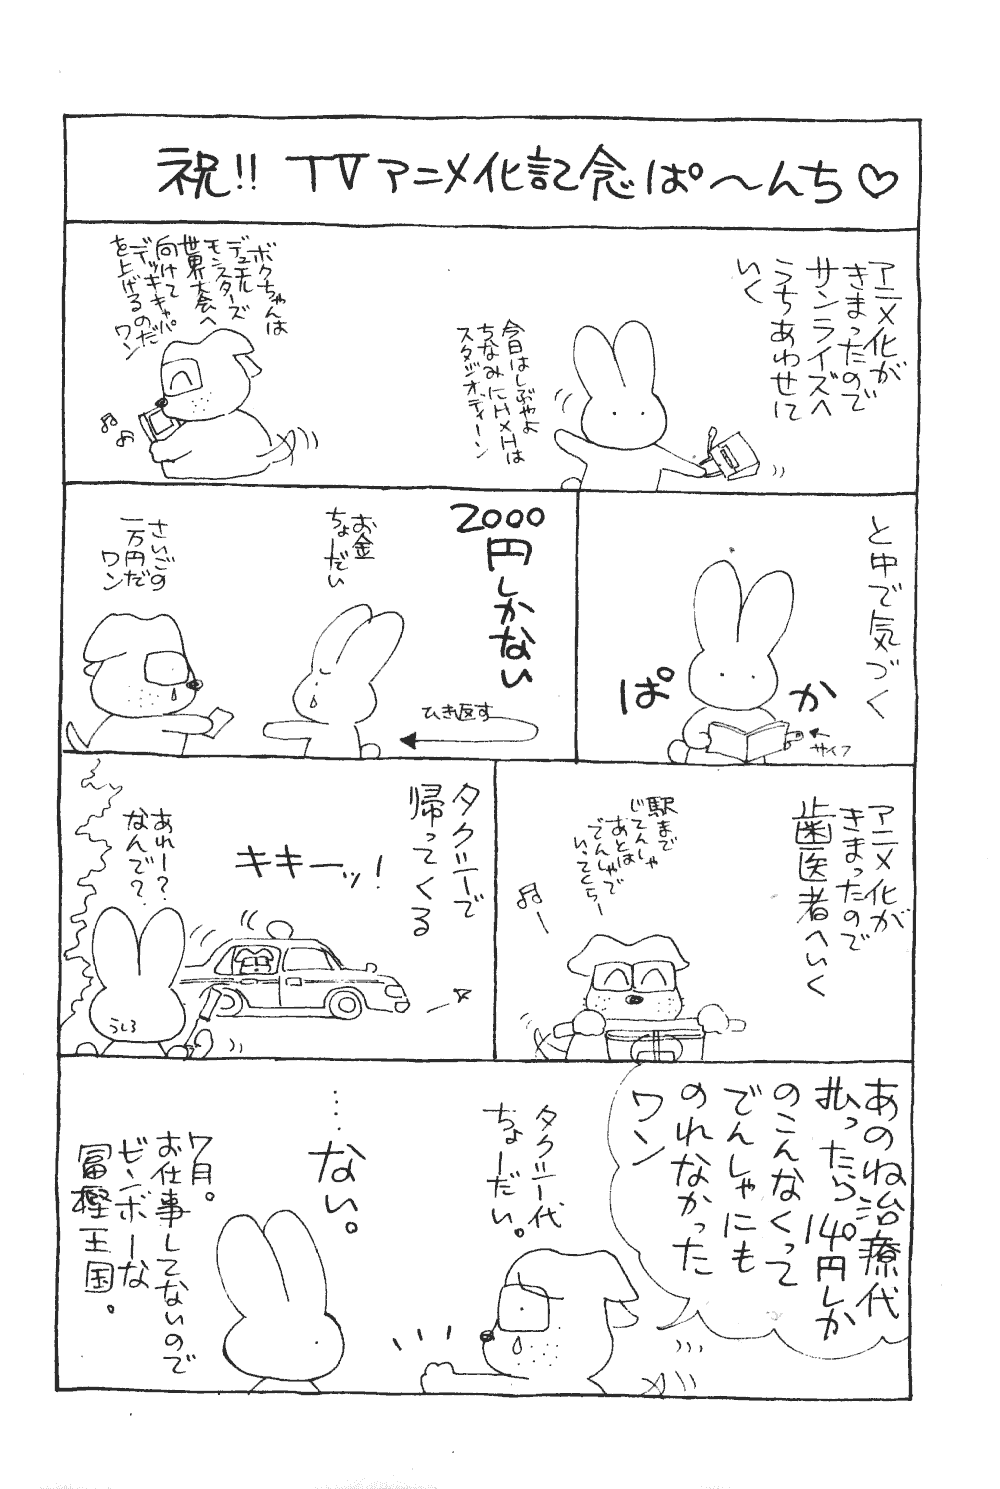 祝!! TVアニメ化記念ぱ〜んち♡
アニメ化が
きまったので
サンライズへ
うちあわせに
いく
今日はしぶやよ
ちなみにH×Hは
スタジオ、ディーン
ボクちゃんは
デュエル
モンスターズ
世界大会へ
向けて
デッキキャパ
を上げるのだ
ワン
と中で気づく
ぱか
サイフ
2000円しかない
ひき返す
お金
ちょーだい
さいごの
一万円だ
ワン
アニメ化が
きまったので
歯医者へいく
駅まで
じてんしゃ
あとは
でんしゃで
いってくらー
タクシーで
帰ってくる
キキーッ!
あれー?
なんで?
うしろ
あのね治療代
払ったら140円しか
のこんなくって
でんしゃにも
のれなかった
ワン
タクシー代
ちょーだい。
……
ない。
7月。
お仕事してないので
ビンボーな
冨樫王国。